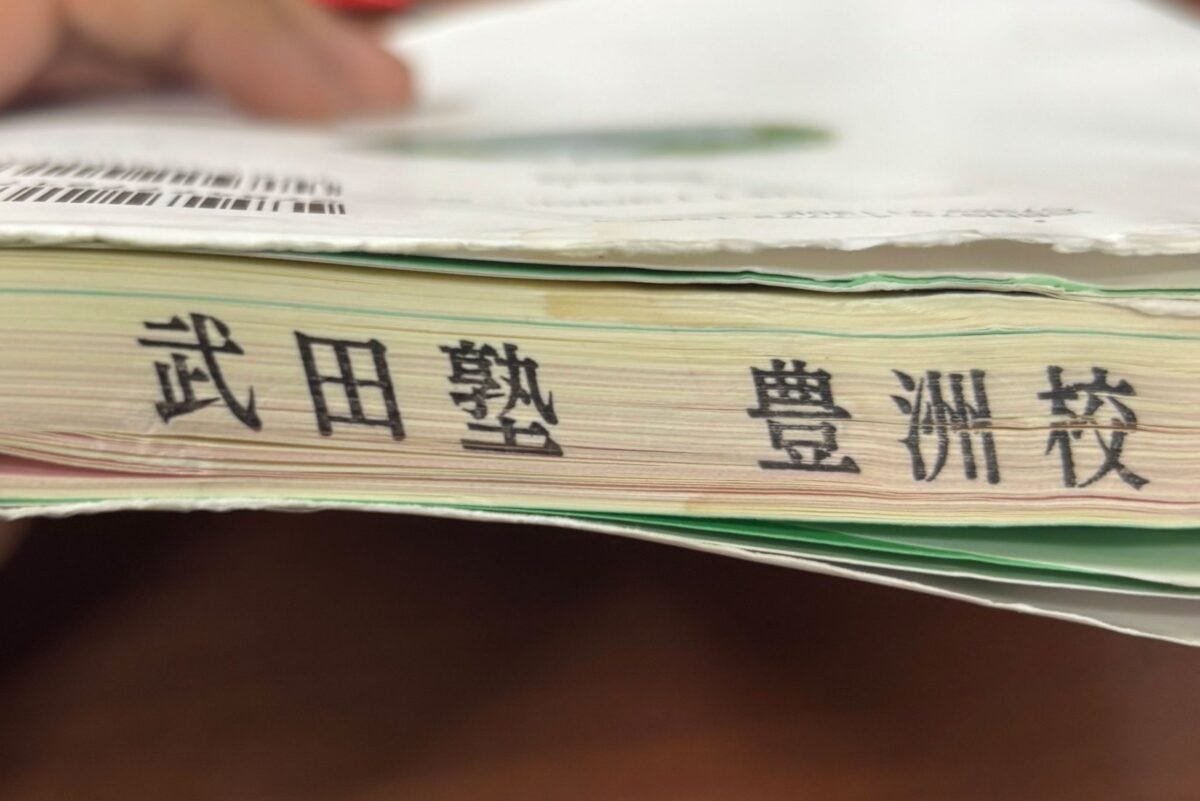 武田塾 豊洲校